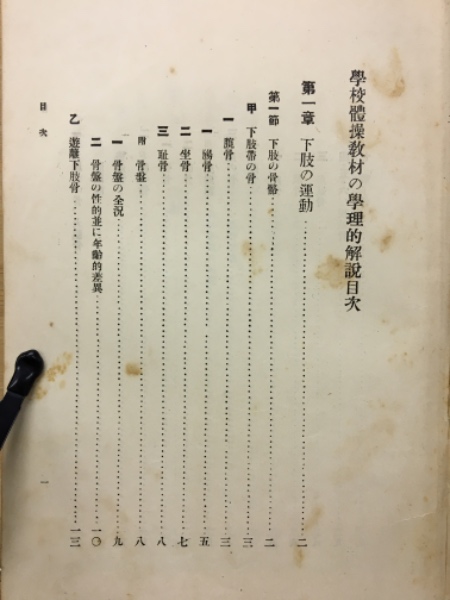 學校體操敎材の學理的解說目次
第一章 下肢の運動 二
第一節 下肢の骨骼 二
甲 下肢帶の骨 三
一 髖骨 三
一 腸骨 五
二 坐骨 七
三 耻骨 八
附 骨盤 八
一 骨盤の全況 九
二 骨盤の性的並に年齡的差異 一〇
乙 遊離下肢骨 一三
目次
一